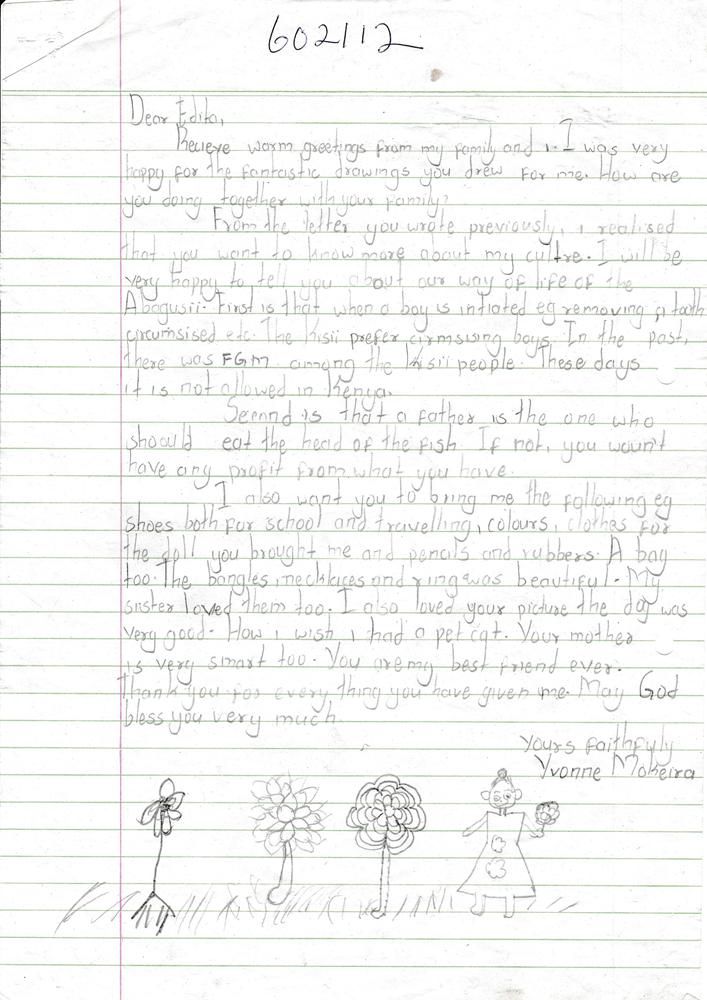 602112
Dear Edita,
Recieve warm greetings from my family and i. I was very
happy for the fantastic drawings you drew for me. How are
you doing together with your family?
From the letter you wrote previously, i realised
that you want to know more about my cultre. I will be
very happy to tell you about our way of life of the
Abagusii. First is that when a boy is intiated eg removing a tooth
circumsised etc. The Kisii prefer cirmsising boys. In the past,
there was FGM among the Kisii people. These days
it is not allowed in Kenya.
Secend is that a father is the one who
should eat the head of the fish. If not, you woun't
have any profit from what you have.
I also want you to bring me the following eg
shoes both for school and travelling, colours, clothes for
the doll you brought me and pencils and rubbers. A bag
too. The bangles, necklaces and ring was beautiful. My
sister loved them too. I also loved your picture the dog was
very good. How i wish i had a pet cat. Your mother
is very smart too. You are my best friend ever.
Thank you for every thing you have given me. May God
bless you very much.
Yours faithfuly
Yvonne Mokeira